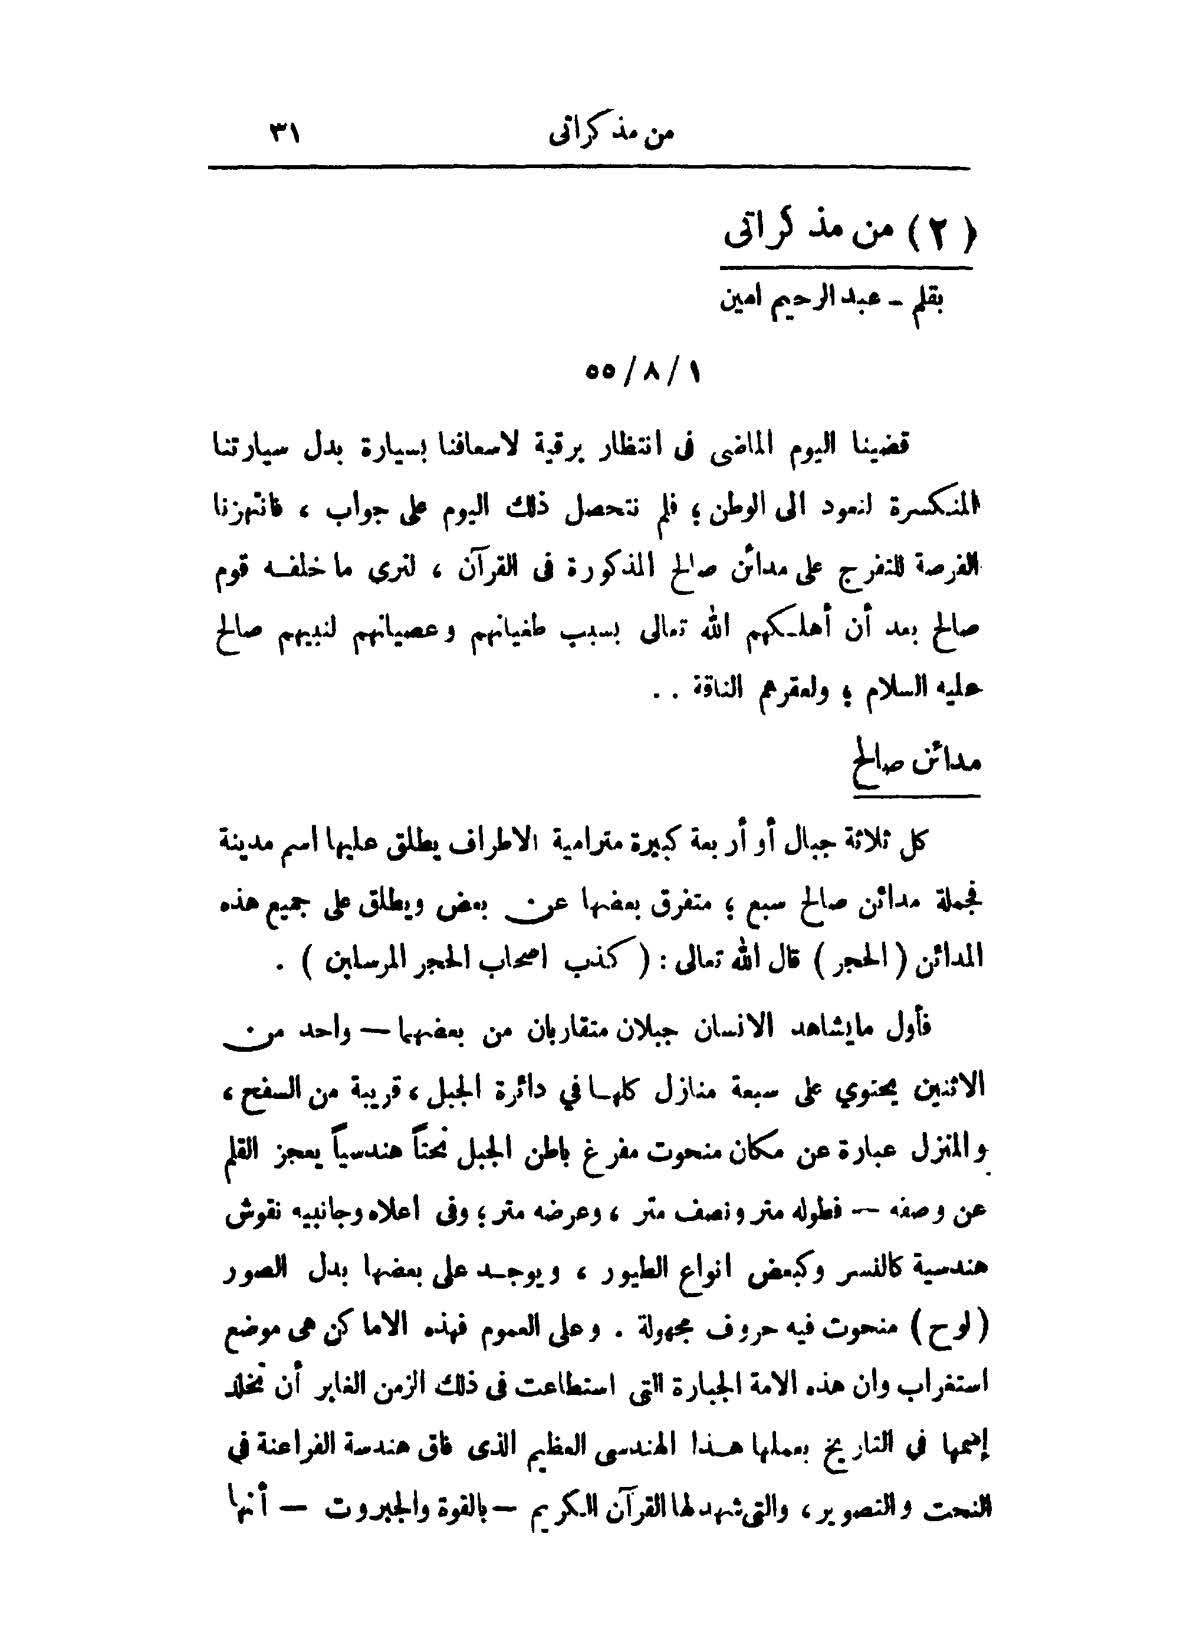 من مذكراتى ٣١
( ٢ ) من مذكراتى
بقلم ـ عبد الرحيم امين
١ / ٨ / ٥٥
قضينا اليوم الماضى فى انتظار برقية لاسعافنا بسيارة بدل سيارتنا
المنكسرة لنعود الى الوطن ؛ فلم نتحصل ذلك اليوم على جواب ، فانتهزنا
الفرصة للتفرج على مدائن صالح المذكورة فى القرآن ، لنرى ما خلفه قوم
صالح بعد أن أهلكهم الله تعالى بسبب طغيانهم وعصيانهم لنبيهم صالح
عليه السلام ؛ ولعقرهم الناقة . .
مدائن صالح
كل ثلاثة جبال أو أربعة كبيرة مترامية الاطراف يطلق عليها اسم مدينة
فجملة مدائن صالح سبع ؛ متفرق بعضها عن بعض ويطلق على جميع هذه
المدائن ( الحجر ) قال الله تعالى : ( كذب اصحاب الحجر المرسلين ) .
فأول مايشاهد الانسان جبلان متقاربان من بعضهما — واحد من
الاثنين يحتوي على سبعة منازل كلها في دائرة الجبل ، قريبة من السفح ،
والمنزل عبارة عن مكان منحوت مفرغ باطن الجبل نحتاً هندسياً يعجز القلم
عن وصفه — فطوله متر ونصف متر ، وعرضه متر ؛ وفى اعلاه وجانبيه نقوش
هندسية كالنسر وكبعض انواع الطيور ، ويوجد على بعضها بدل الصور
( لوح ) منحوت فيه حروف مجهولة . وعلى العموم فهذه الاماكن هى موضع
استغراب وان هذه الامة الجبارة التى استطاعت فى ذلك الزمن الغابر أن تخلد
إسمها في التاريخ بعملها هذا الهندسى العظيم الذى فاق هندسة الفراعنة في
النحت والتصوير ، والتى شهد لها القرآن الكريم — بالقوة والجبروت — أنها